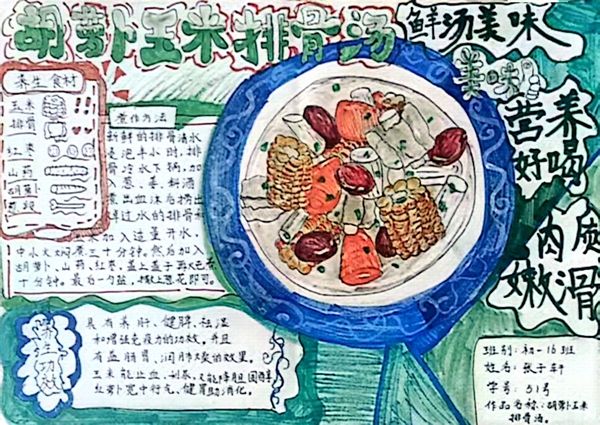 胡萝卜玉米排骨汤
鲜汤美味
美味
营养
好喝
肉质
嫩滑
养生食材
玉米
排骨
红枣
山药
胡萝卜
葱段
煮作办法
新鲜的排骨清水
浸泡半小时,排
骨冷水下锅,加
入葱、姜、料酒
煮出血沫后捞出
过水的排骨
加入适量开水,
中小火焖煮三十分钟。然后加入
胡萝卜、山药、红枣,盖上盖子再
十分钟。最后一勺盐,撒上葱花即可
养生功效
具有养肝、健脾、祛湿
和增强免疫力的功效,并且
有益肠胃、润肺
玉米能止血、利尿、又能降胆固醇
红萝卜宽中行气、健胃助消化。
班别:初一16班
姓名:张子轩
学号:51号
作品名称:胡萝卜玉米
排骨汤。